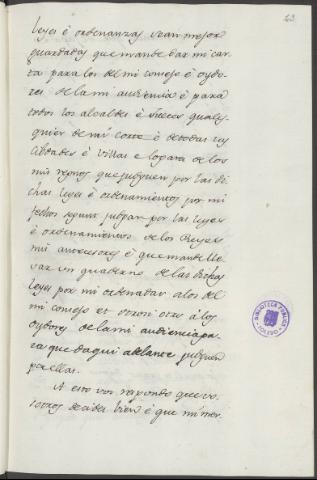 43
leyes è ordenanzas sean mejor
guardadas que mande dar mi car-
ta para los del mi consejo è oydo-
res de la mi audiencia è para
todos los alcaldes è Jueces quales-
quier de mi corte è de todas las
cibdades è villas e logares de los
mis reynos que judguen por las di-
chas leyes è ordenamientos por mi
fechos segunt judgan por las leyes
è ordenamientos de los Reyes
mis antecesores è que mande lle-
var un quaderno de las dichas
leyes por mi ordenadas a los del
mi consejo et otrosi otro à los
oydores de la mi audiencia pa-
ra que de aqui adelante judguen
por ellas.
A esto vos respondo que vo-
sotros decides bien è que mi mer-
BIBLIOTECA PUBLICA
TOLEDO